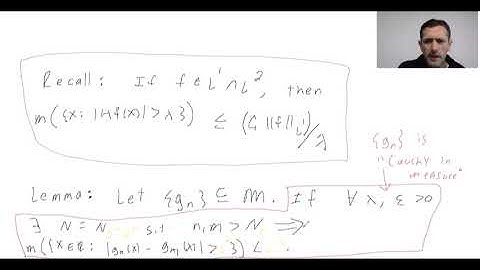 Recall: If f ∈ L¹ ∩ L², then
m({x: |Hf(x)| > λ}) ≤ (C₁ ||f||_L¹)/λ
{gₙ} is
"Cauchy in
measure"
Lemma: Let {gₙ} ⊆ M. If ∀ λ, ε > 0
∃ N = N s.t. n, m > N ⟹
m({x ∈ ℝ: |gₙ(x) - gₘ(x)| > }) <